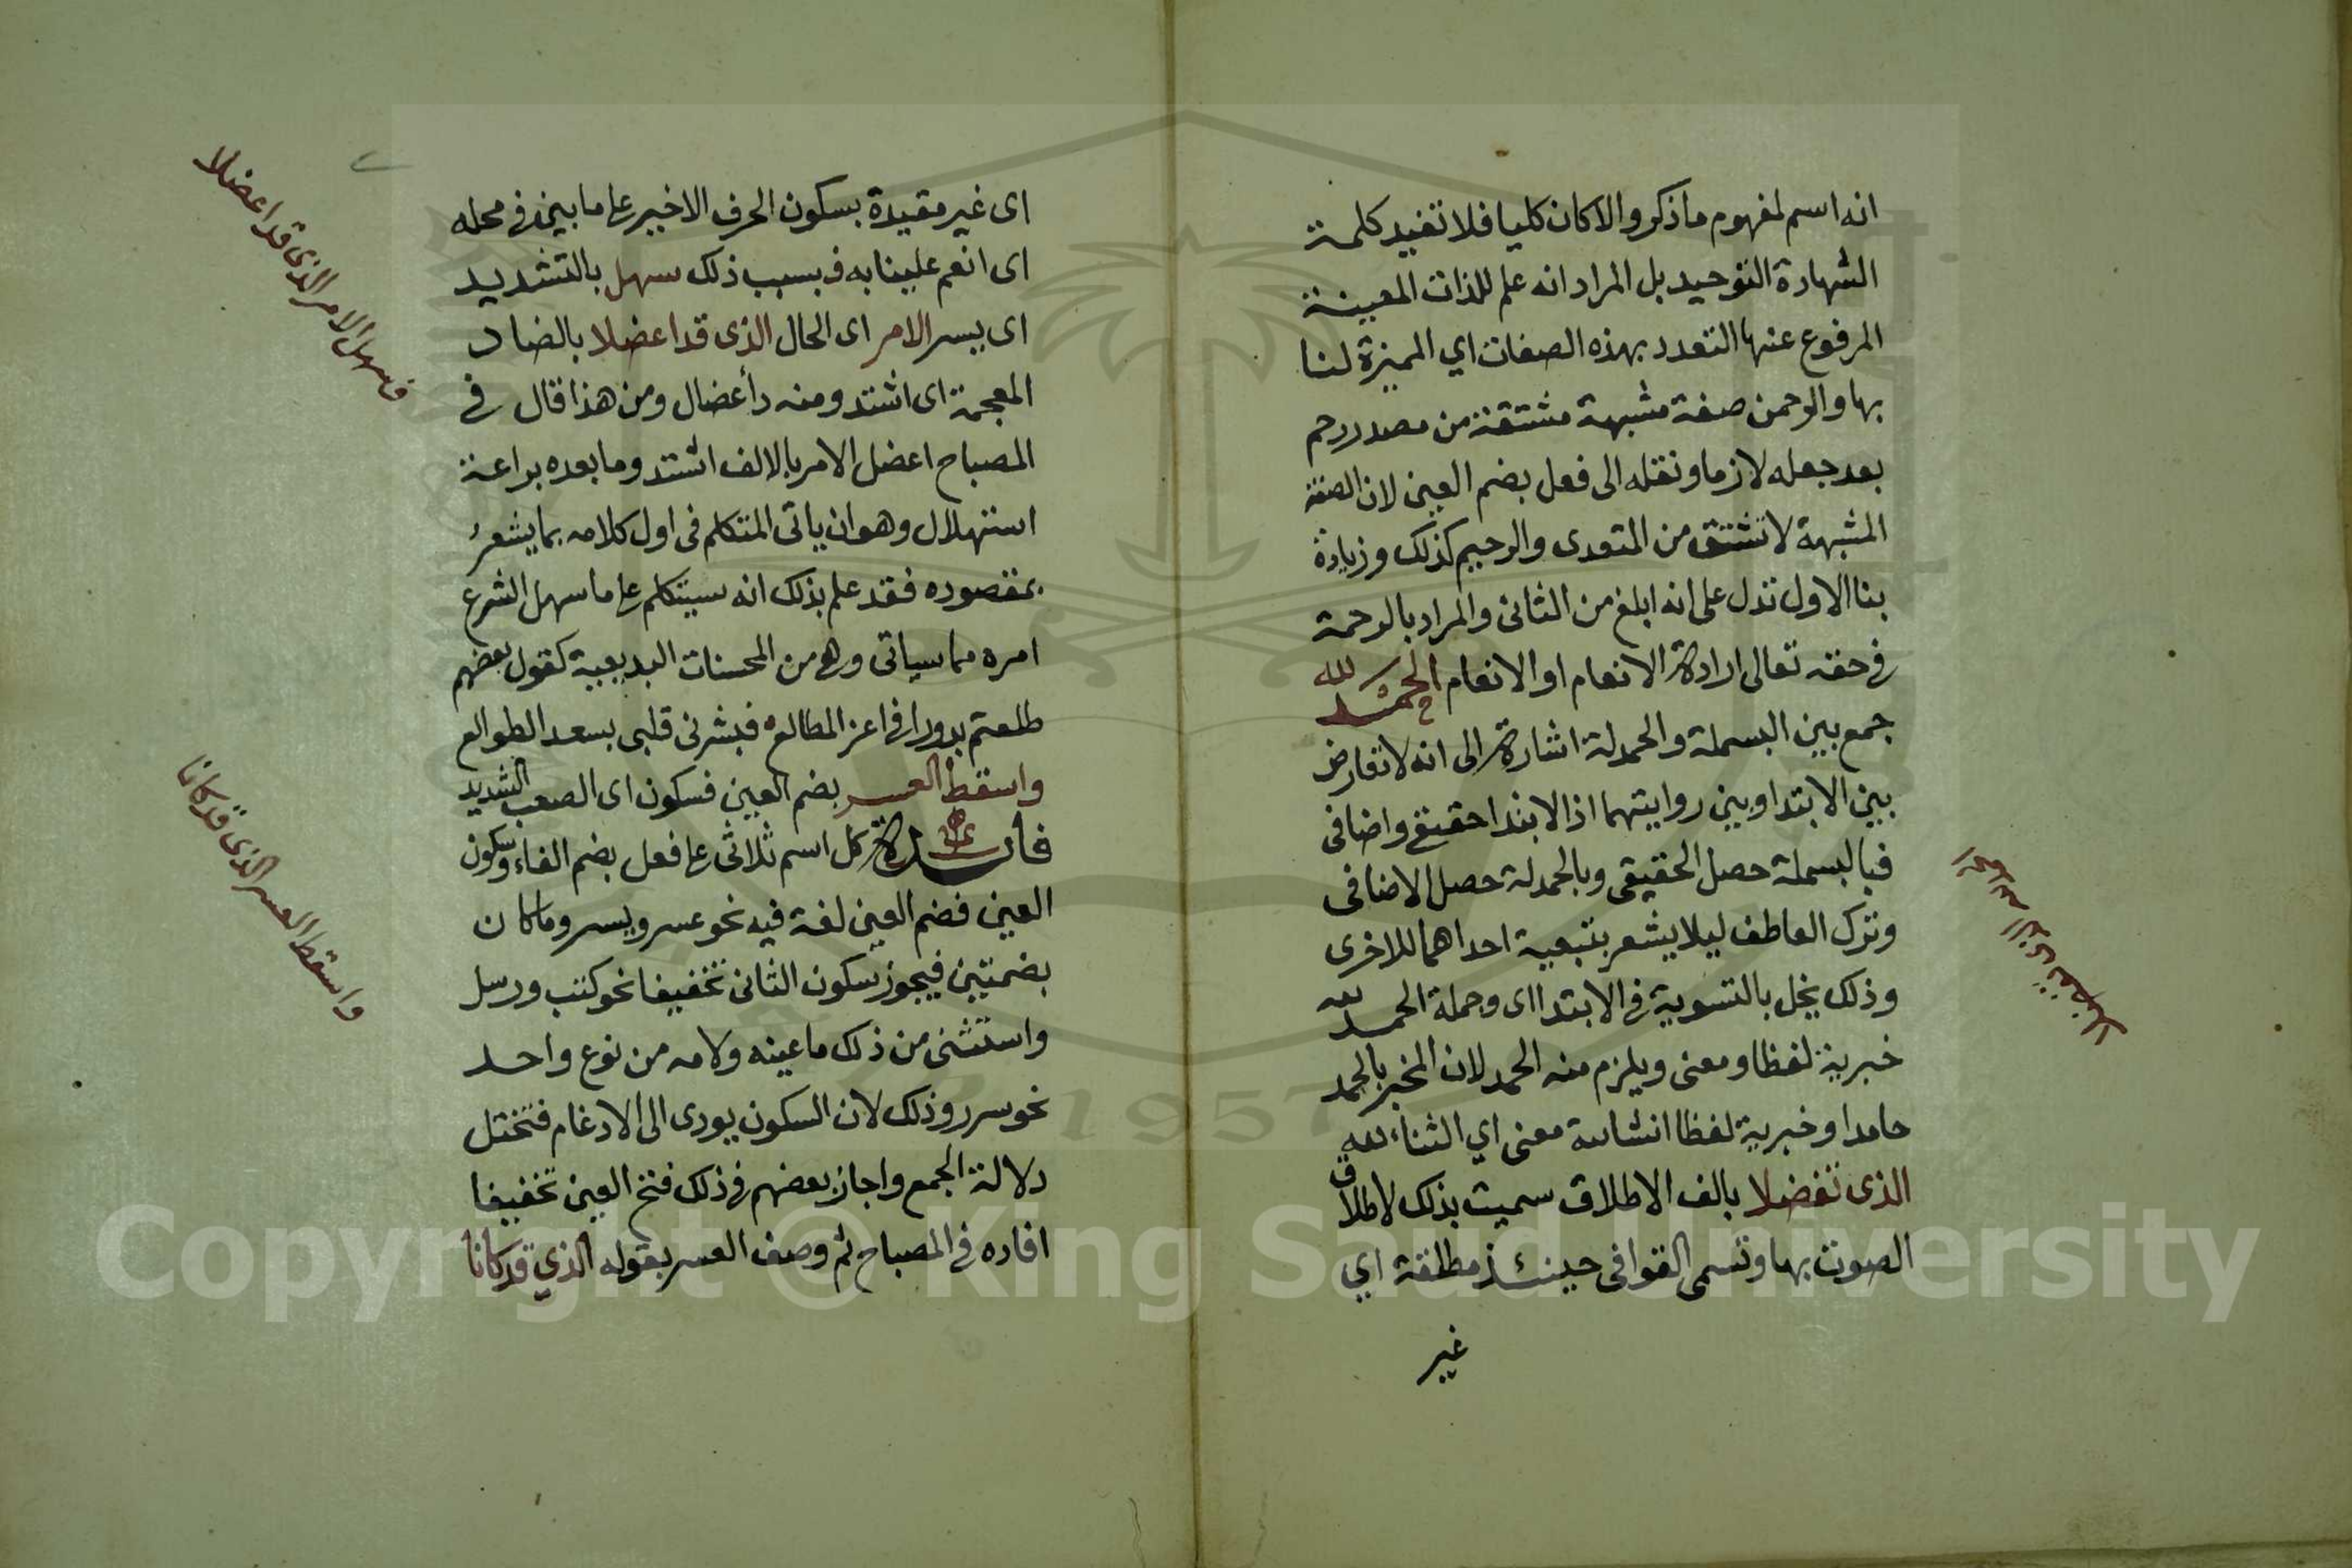 انه اسم لمفهوم ما ذكر والا كان كليا فلا تفيد كلمة
الشهادة التوحيد بل المراد انه علم للذات المعينة
المرفوع عنها التعدد بهذه الصفات اي المميزة لنا
بها والرحمن صفة مشبهة مشتقة من مصدر رحم
بعد جعله لازما ونقله الى فعل بضم العين لان الصفة
المشبهة لا تشتق من المتعدى والرحيم كذلك وزيادة
بنا الاول تدل على انه ابلغ من الثانى والمراد بالرحمة
فى حقه تعالى ارادة الانعام او الانعام الحمد لله
جمع بين البسملة والحمدلة اشارة الى انه لا تعارض
بين الابتدا وبين روايتهما اذ الابتدا حقيقى واضافى
فبالبسملة حصل الحقيقى وبالحمدلة حصل الاضافى
وترك العاطف ليلا يشعر بتبعية احداهما للاخرى
وذلك يخل بالتسوية فى الابتدا اى وجملة الحمد لله
خبرية لفظا ومعنى ويلزم منه الحمد لان المخبر بالحمد
حامد او خبرية لفظا انشائية معنى اي الثناء لله
الذى تفضلا بالف الاطلاق سميت بذلك لاطلاق
الصوت بها وتسمى القوافى حينئذ مطلقة اي
غير
الحمد لله الذى تفضلا
اى غير مقيدة بسكون الحرف الاخير على ما بين فى محله
اى انعم علينا به فبسبب ذلك سهل بالتشديد
اى يسر الامر اى الحال الذى قد اعضلا بالضاد
المعجمة اى اشتد ومنه دأ عضال ومن هذا قال فى
المصباح اعضل الامر بالالف اشتد وما بعده براعة
استهلال وهو ان ياتى المتكلم فى اول كلامه بما يشعر
بمقصوده فقد علم بذلك انه سيتكلم على ما سهل الشرع
امره مما سياتى وهى من المحسنات البديعية كقول بعضهم
طلعتم بدورا فى اعز المطالع فبشرنى قلبى بسعد الطوالع
واسقط العسر بضم العين فسكون اى الصعب الشديد
فائدة كل اسم ثلاثى على فعل بضم الفاء وسكون
العين فضم العين لغة فيه نحو عسر ويسر وما كان
بضمتين فيجوز سكون الثانى تخفيفا نحو كتب ورسل
واستثنى من ذلك ما عينه ولامه من نوع واحد
نحو سرر وذلك لان السكون يودى الى الادغام فتختل
دلالة الجمع واجاز بعضهم فى ذلك فتح العين تخفيفا
افاده فى المصباح ثم وصف العسر بقوله الذي قد كانا
فسهل الامر الذى قد اعضلا
واسقط العسر الذى قد كانا
1957
Copyright © King Saud University